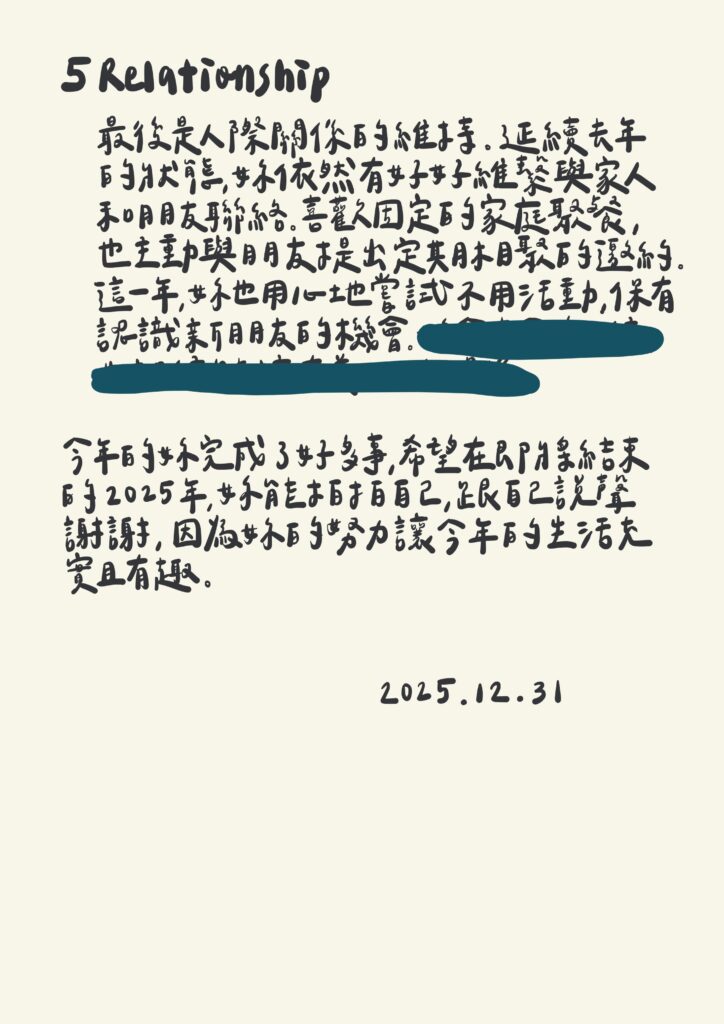 5 Relationship
最後是人際關係的維持. 延續去年
的狀態,妳依然有好好維繫與家人
和朋友聯絡.喜歡固定的家庭聚餐,
也主動與朋友提出定期相聚的邀約.
這一年,妳也用心地嘗試不用活動,保有
認識新朋友的機會.
今年的妳完成了好多事,希望在即將結束
的2025年,妳能拍拍自己,跟自己說聲
謝謝, 因為妳的努力讓今年的生活充
實且有趣。
2025.12.31